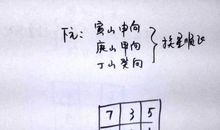 下元：寅山申向
庚山甲向
丁山癸向
挨星順
7 3 5